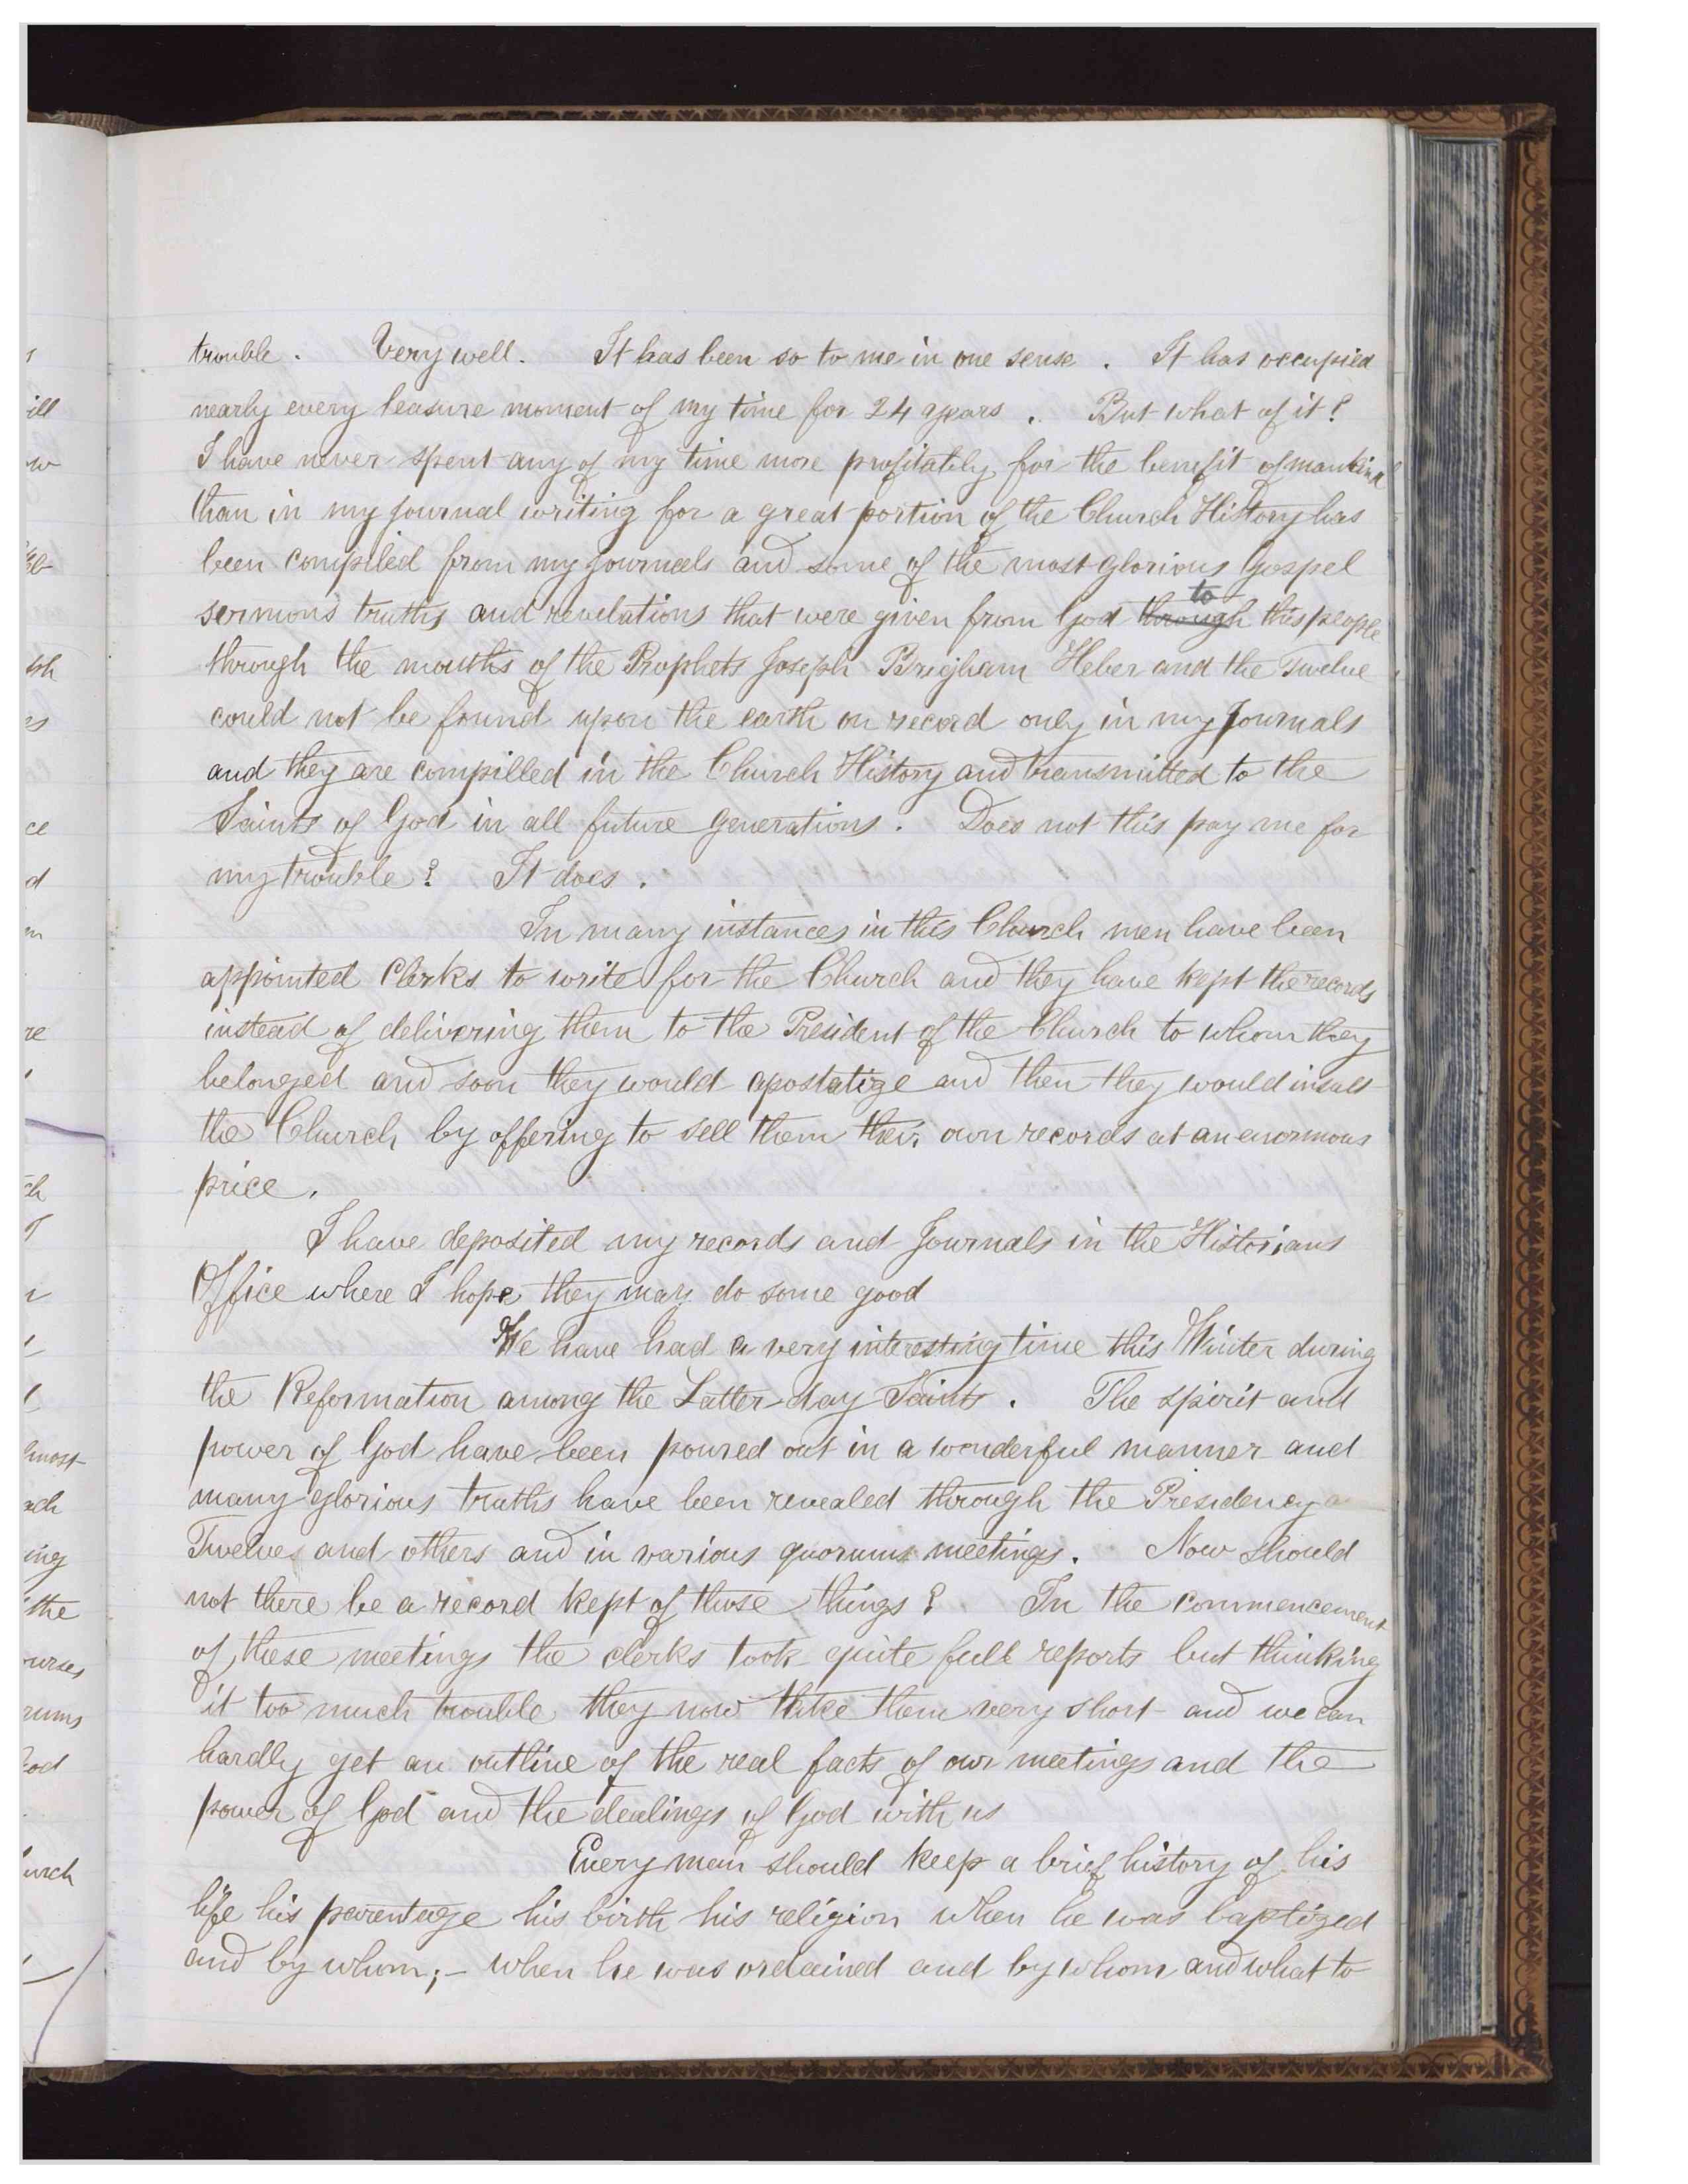 trouble. Very well. It has been so to me in one sense. It has occupied
nearly every leasure moment of my time for 24 years. But what of it?
I have never spent any of my time more profitably for the benefit of mankind
than in my journal writing for a great portion of the Church History has
been compiled from my journals and some of the most glorious Gospel
sermons truths and revelations that were given from God ~~through~~ to this people
through the mouths of the Prophets Joseph Brigham Heber and the Twelve
could not be found upon the earth on record only in my Journals
and they are compilled in the Church History and transmitted to the
Saints of God in all future generations. Does not this pay me for
my trouble? It does.
In many instances in this Church men have been
appointed Clerks to write for the Church and they have kept the records
instead of delivering them to the President of the Church to whom they
belonged and soon they would apostatize and then they would insult
the Church by offering to sell them their own records at an enormous
price.
I have deposited my records and Journals in the Historians
Office where I hope they may do some good
We have had a very interesting time this Winter during
the Reformation among the Latter-day Saints. The spirit and
power of God have been poured out in a wonderful manner and
many glorious truths have been revealed through the Presidency
Twelve and others and in various quorums meetings. Now should
not there be a record kept of those things? In the commencement
of these meetings the clerks took quite full reports but thinking
it too much trouble they now take them very short and we can
hardly get an outline of the real facts of our meetings and the
power of God and the dealings of God with us
Every man should keep a brief history of his
life his parentage his birth his religion when he was baptized
and by whom;- when he was ordained and by whom and what to